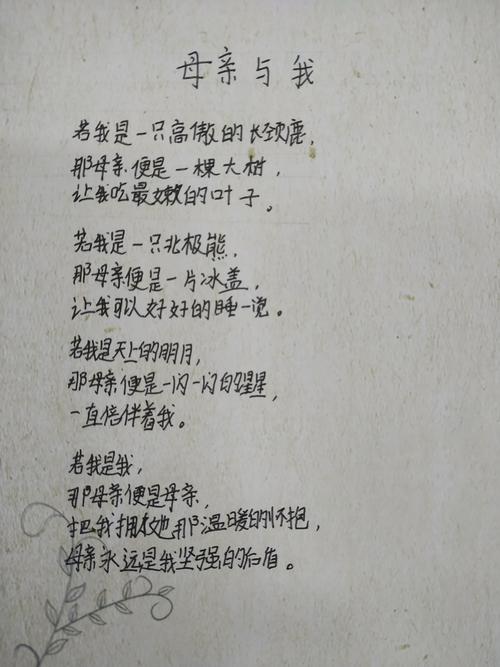 母亲与我
若我是一只高傲的长颈鹿,
那母亲便是一棵大树,
让我吃最嫩的叶子。
若我是一只北极熊,
那母亲便是一片冰盖,
让我可以好好的睡一觉。
若我是天上的明月,
那母亲便是一闪一闪的星星,
一直倍伴着我。
若我是我,
那母亲便是母亲,
把我拥在她那温暖的怀抱,
母亲永远是我坚强的后盾。